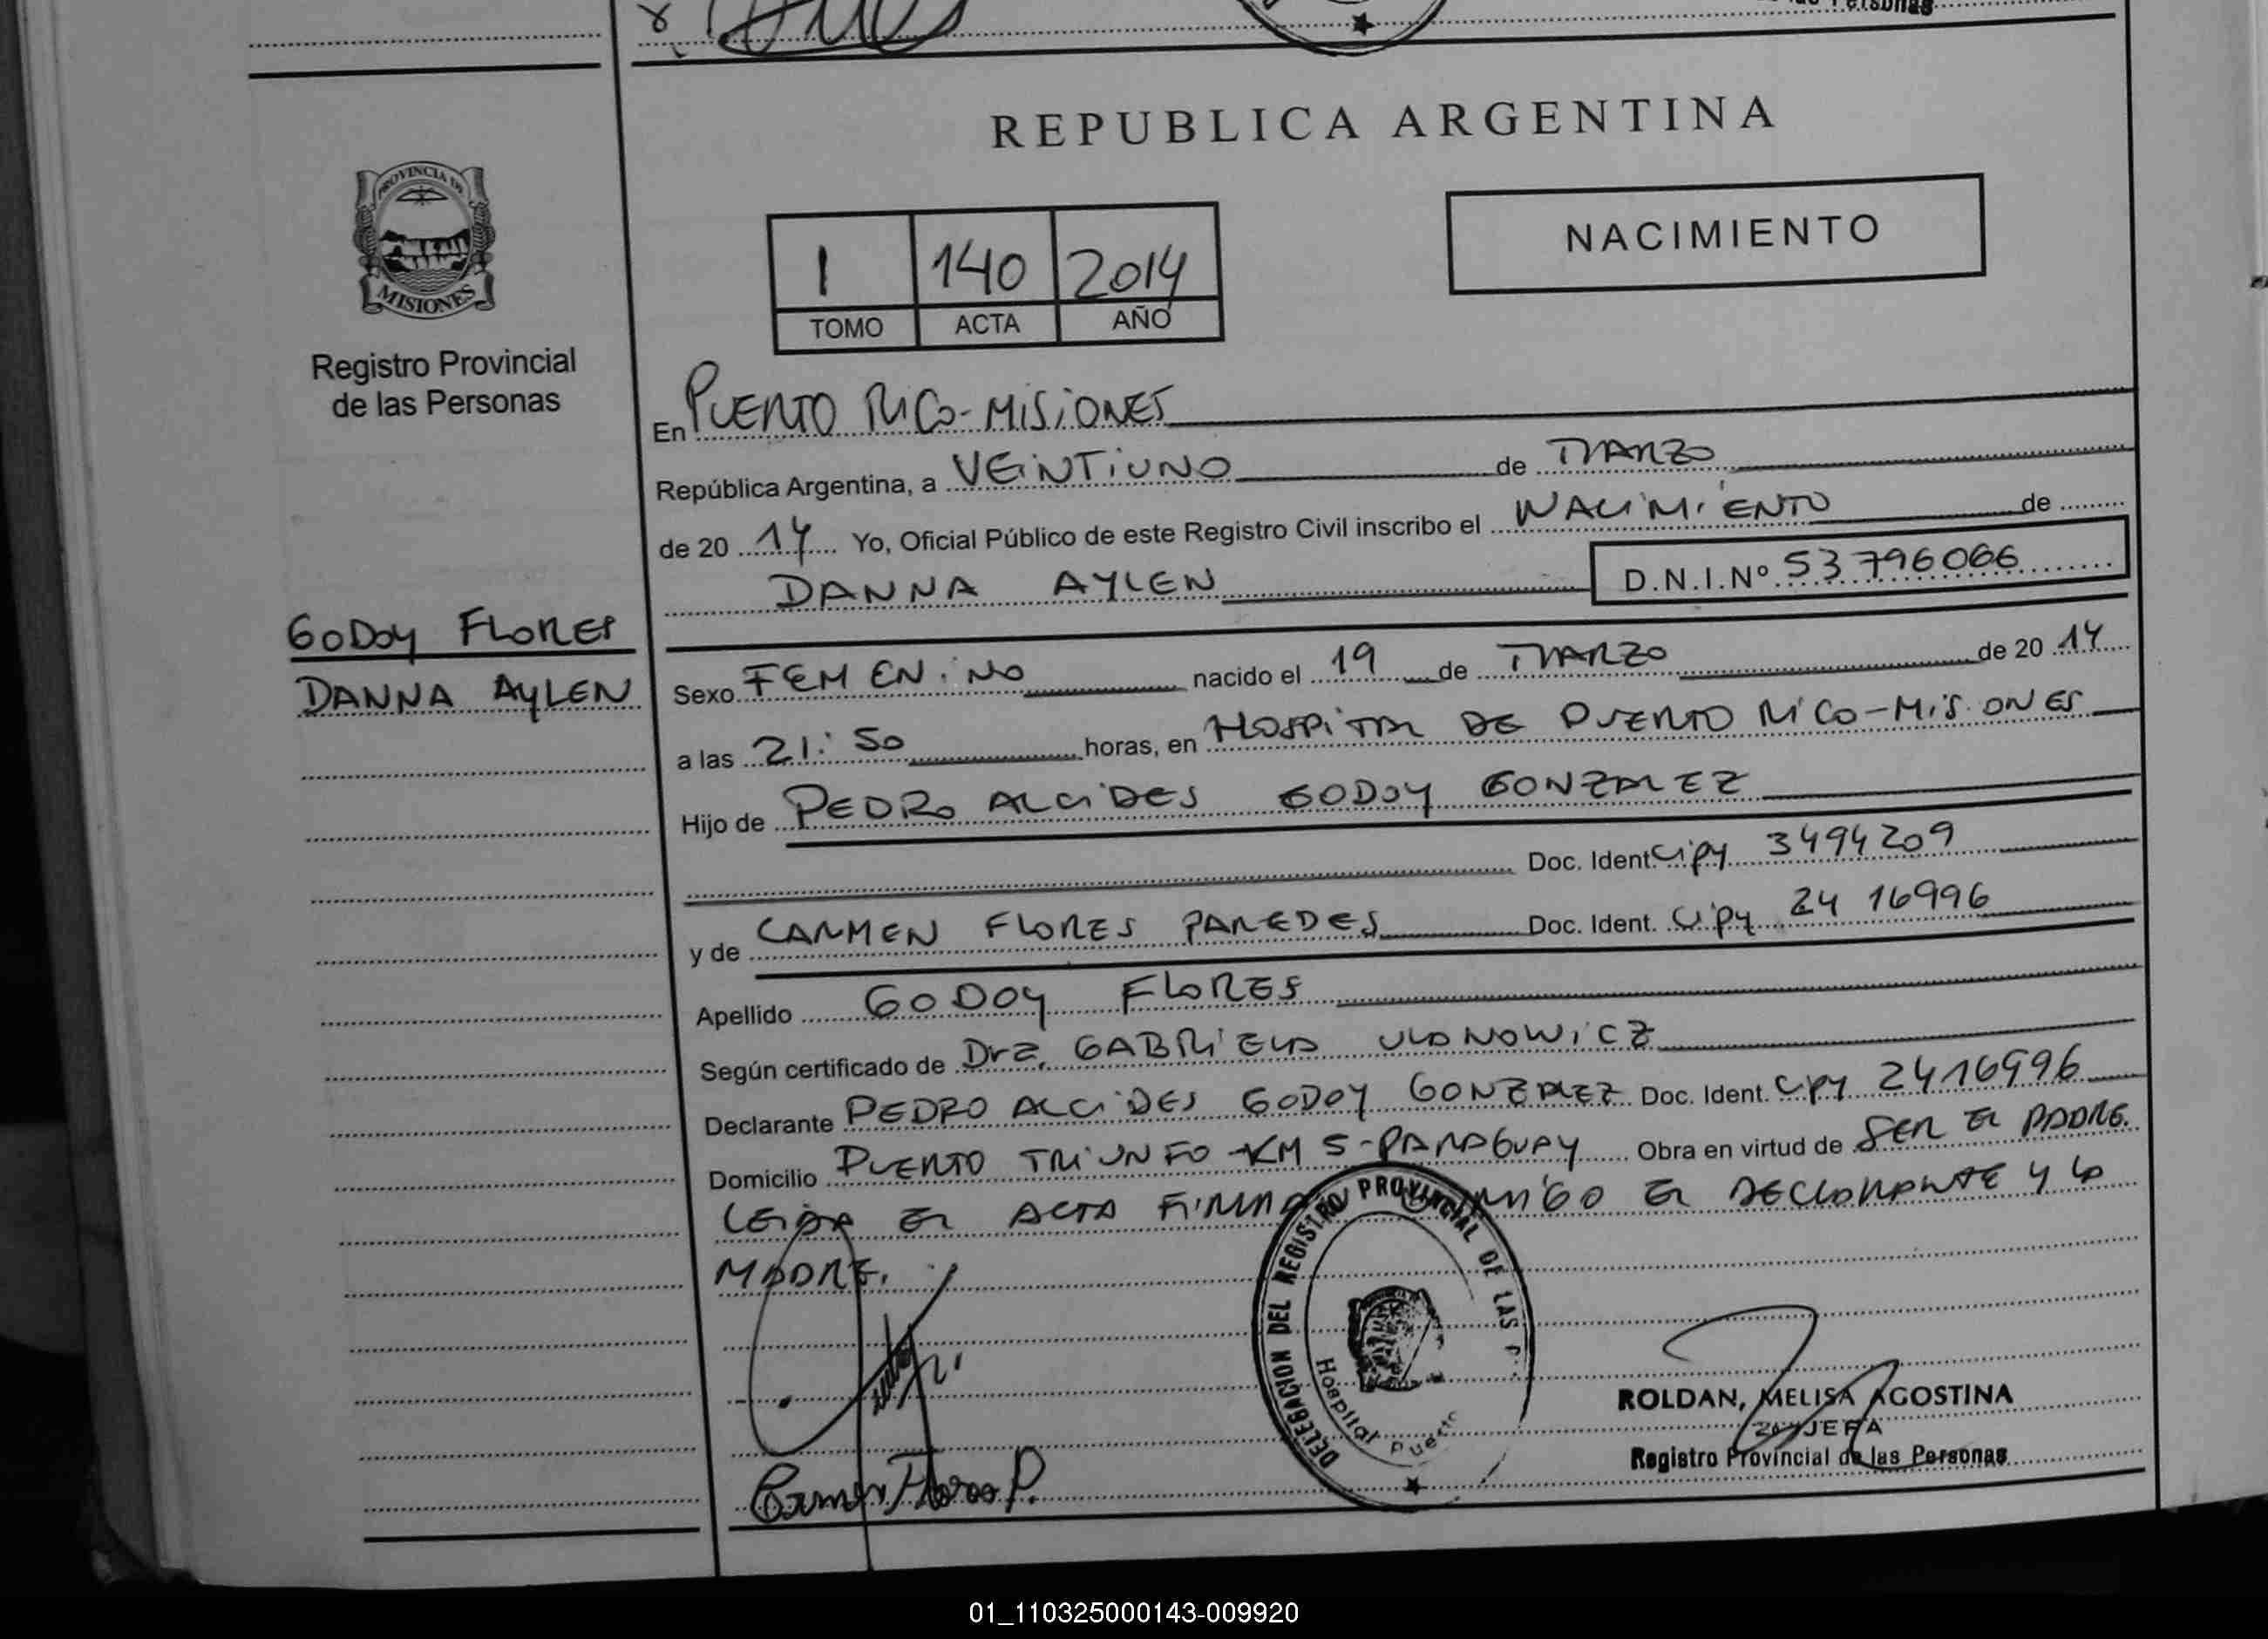 Personas
REPUBLICA ARGENTINA
PROVINCIA DE
MISIONES
Registro Provincial
de las Personas
NACIMIENTO
1 140 2014
TOMO ACTA AÑO
En PUERTO RICO-MISIONES
República Argentina, a VEINTIUNO de MARZO
de 20 14 Yo, Oficial Público de este Registro Civil inscribo el NACIMIENTO de
DANNA AYLEN D.N.I.Nº 53 796066
GODOY FLORES
DANNA AYLEN
Sexo FEMENINO nacido el 19 de MARZO de 20 14
a las 21:50 horas, en HOSPITAL DE PUERTO RICO-MISIONES
Hijo de PEDRO ALCIDES GODOY GONZALEZ
Doc. Ident. CIPY 3494209
y de CARMEN FLORES PAREDES Doc. Ident. CIPY 24 16996
Apellido GODOY FLORES
Según certificado de Dra. GABRIELA ULONOWICZ
Declarante PEDRO ALCIDES GODOY GONZALEZ Doc. Ident. CIPY 2416996
Domicilio PUERTO TRIUNFO-KM 5-PARAGUAY Obra en virtud de SER EL PADRE.
LEIDA EL ACTA FIRMA CONMIGO EL DECLARANTE Y LA
MADRE.
DELEGACION DEL REGISTRO PROVINCIAL DE LAS P.
Hospital Puerto
ROLDAN, MELISA AGOSTINA
JEFA
Registro Provincial de las Personas
Carmen Flores P.
01_110325000143-009920